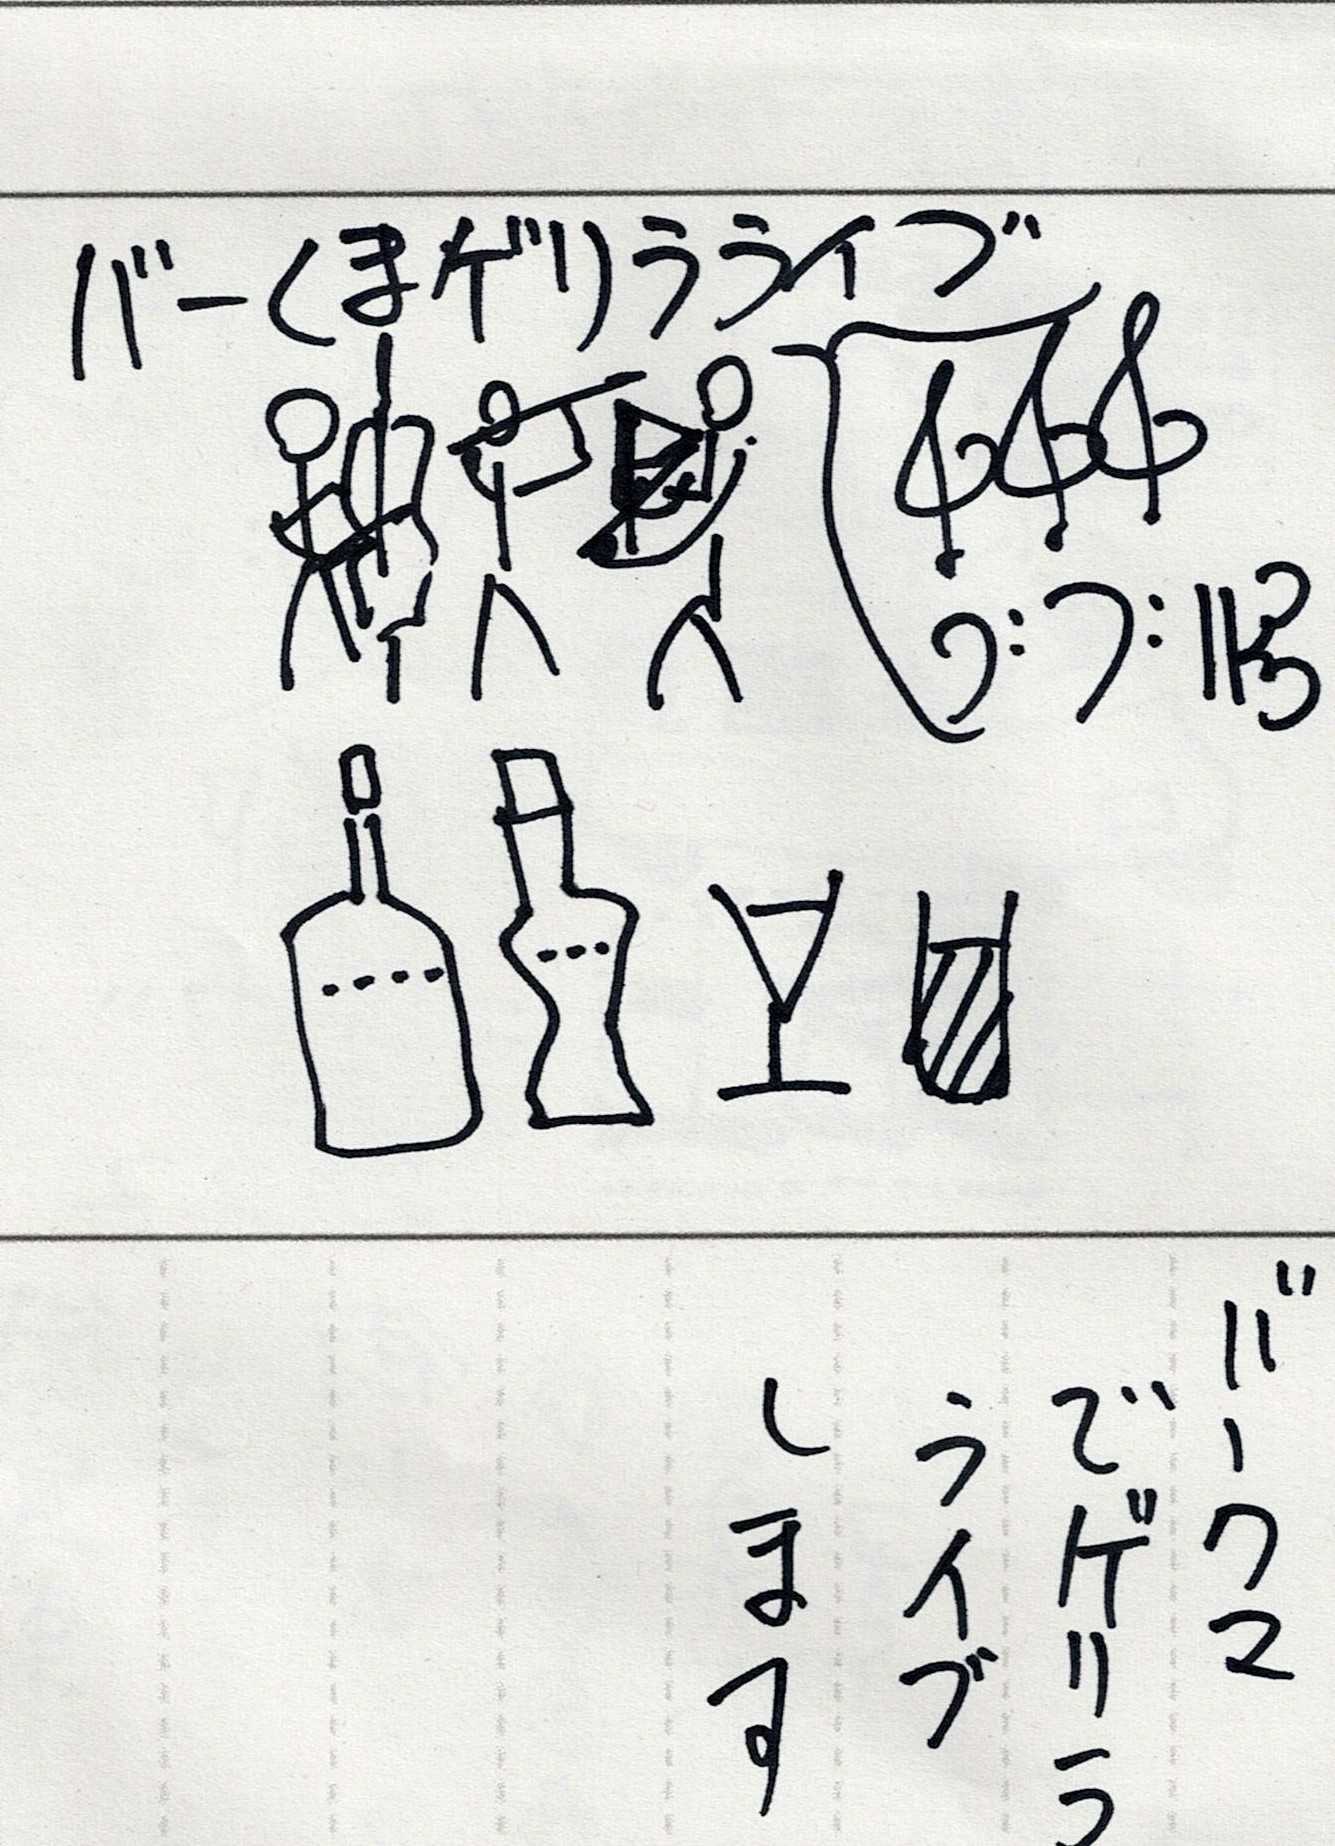 バーくまゲリラライブ
バークマ
でゲリラ
ライブ
します